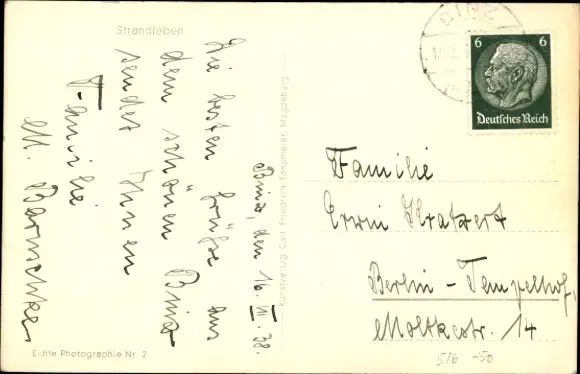 Strandleben
Binz, den 16. VI. 38.
Die besten Grüße aus
dem schönen Binz
sendet Ihnen
Familie
M.
Echte Photographie Nr. 2
Kunstverlag Carl Friedrich Fangmeier, Magdeburg
BINZ
6 6
Deutsches Reich
Familie
Erwin Kratzert
Berlin-Tempelhof,
Moltkestr. 14
516 -50